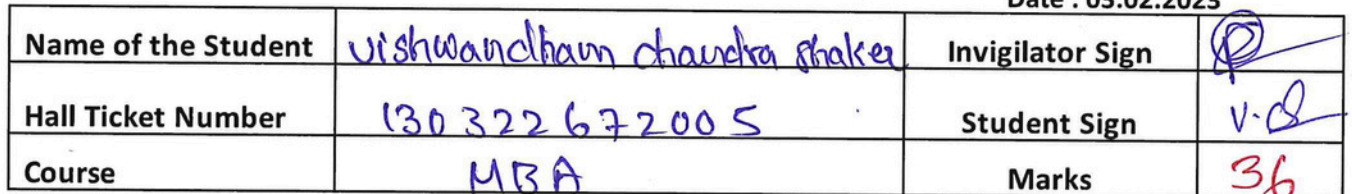 Date : 03.02.2023
Name of the Student vishwandham chandra shaker Invigilator Sign
Hall Ticket Number 130322672005 Student Sign V.
Course MBA Marks 36